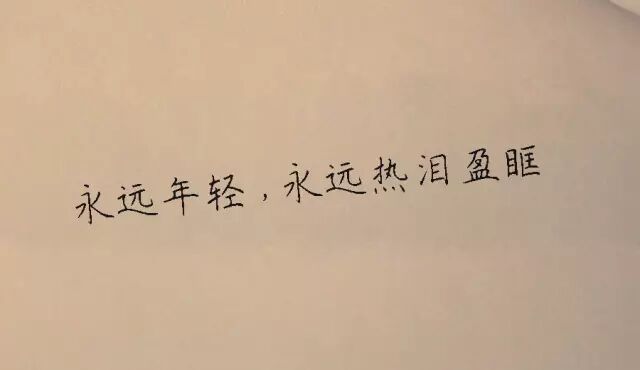 永远年轻,永远热泪盈眶